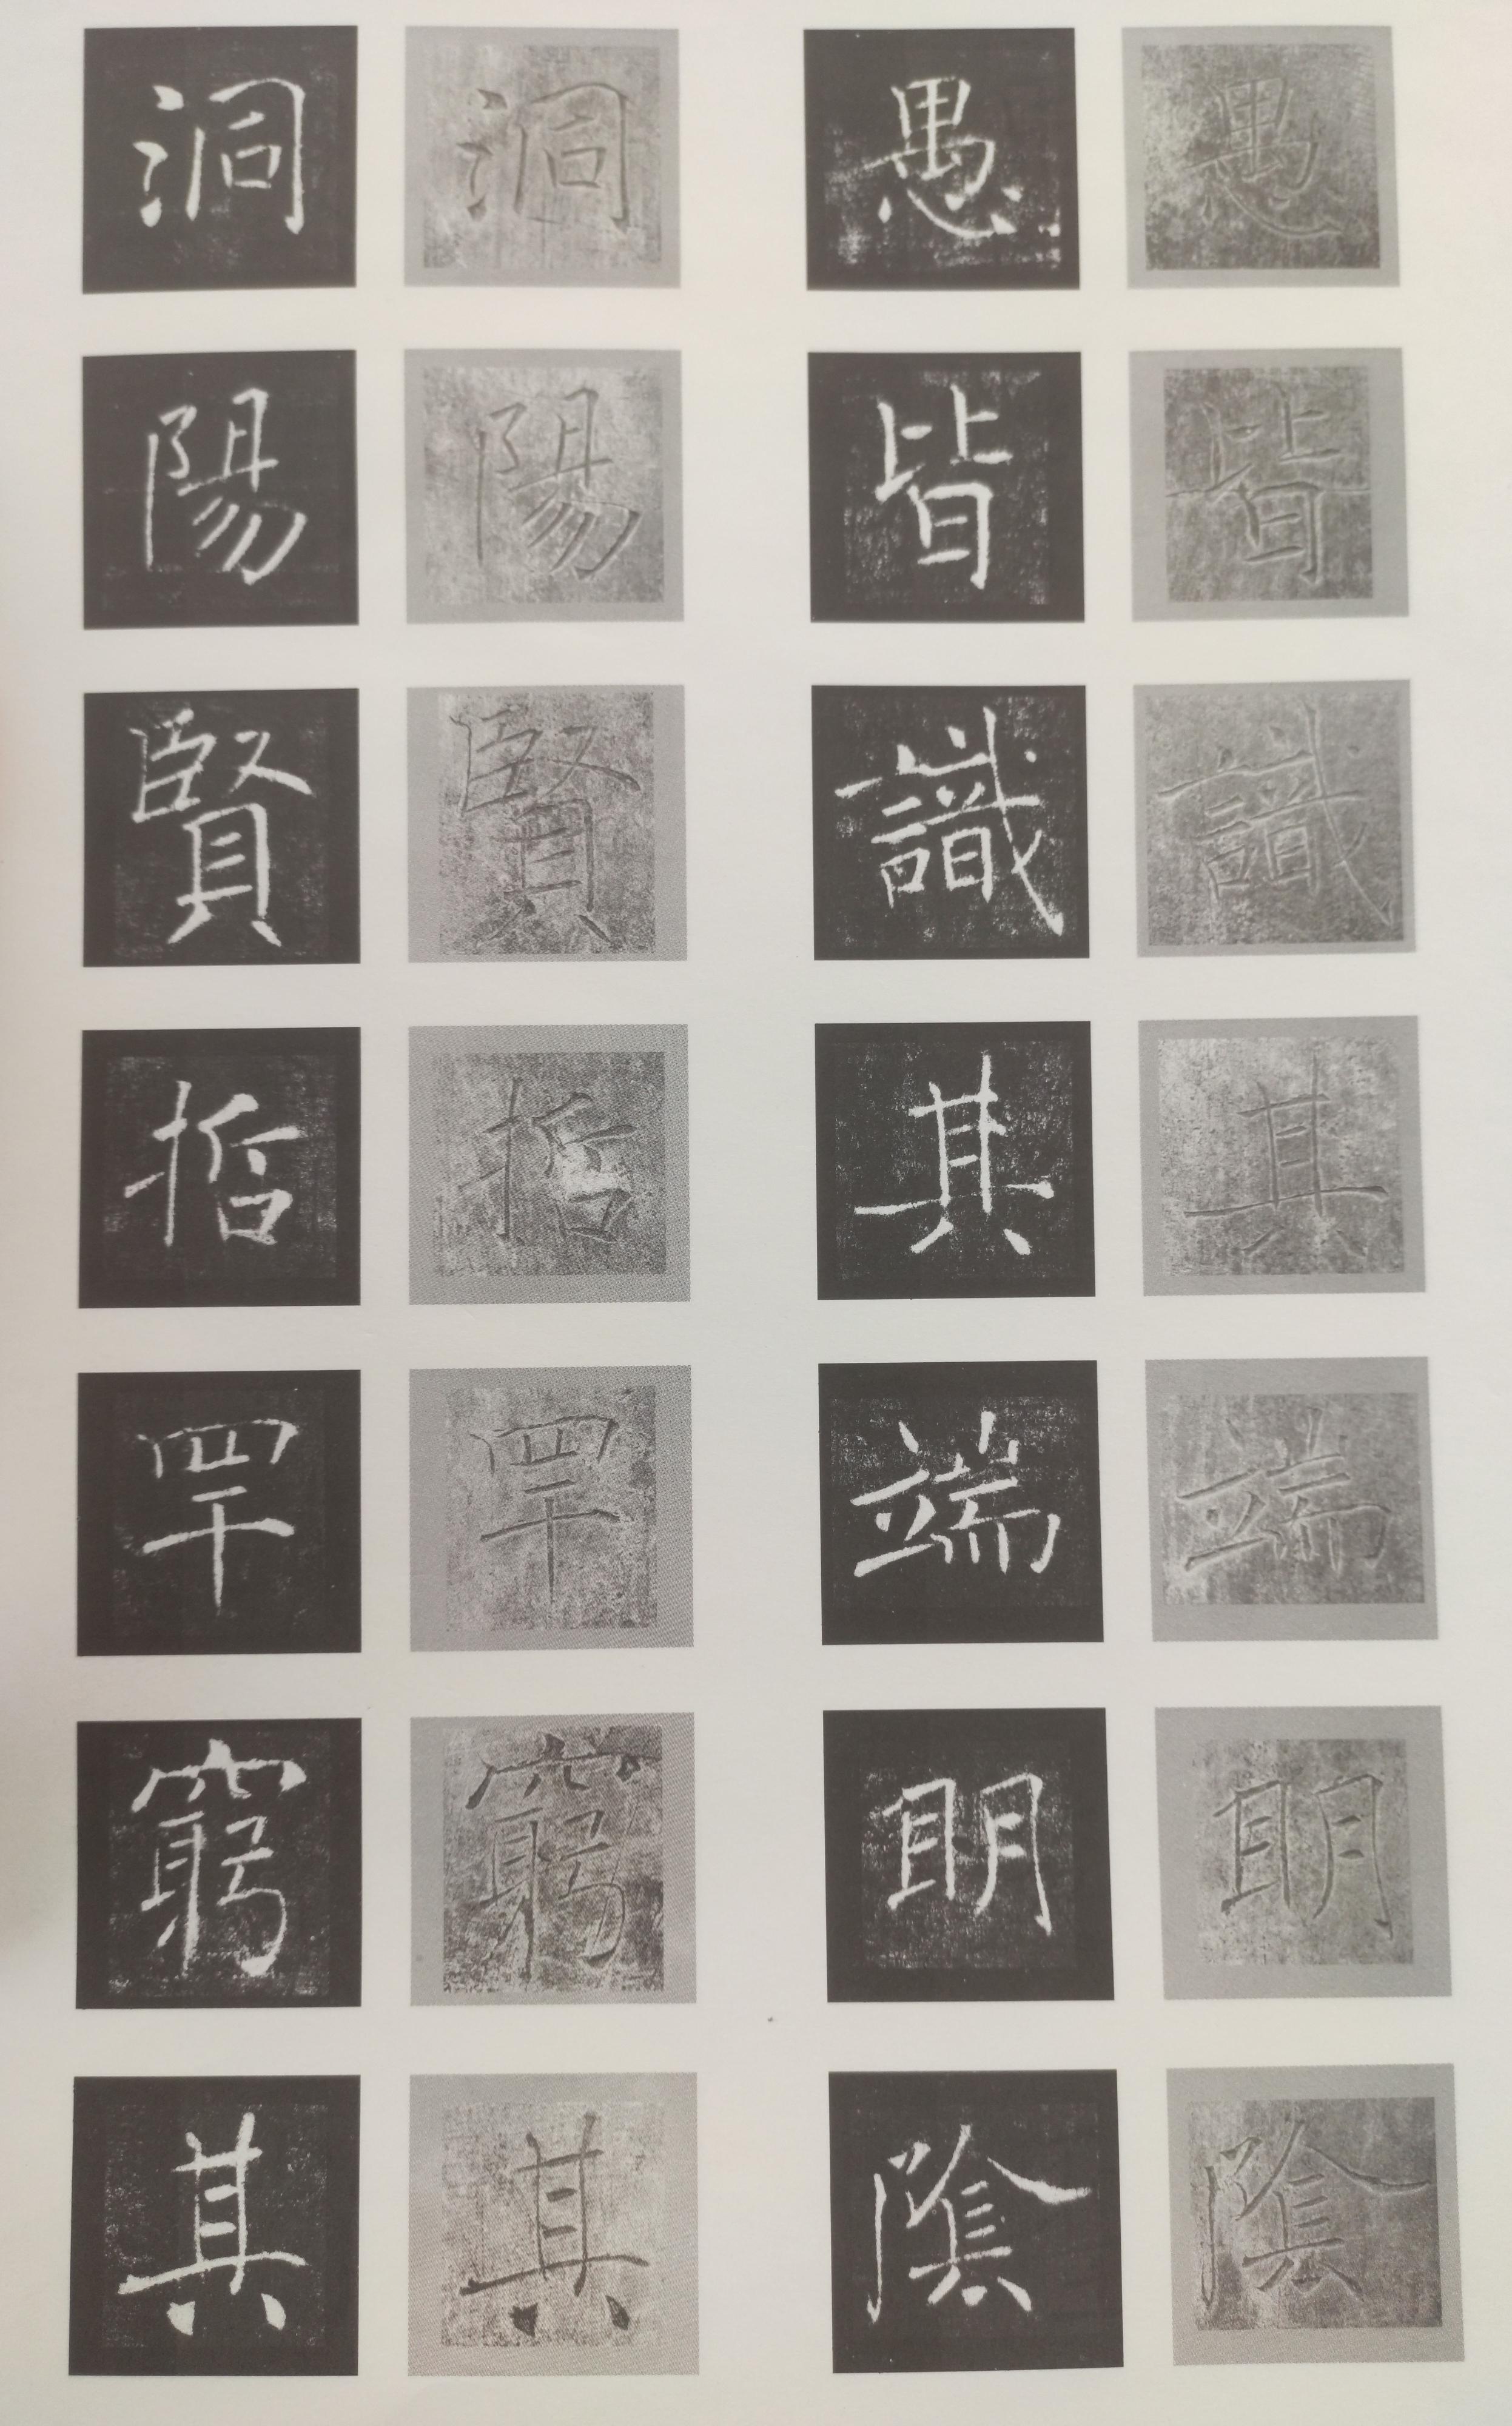 愚皆識其端眀陰
愚皆識其端眀陰
洞陽賢哲罕窮其
洞陽賢哲罕窮其